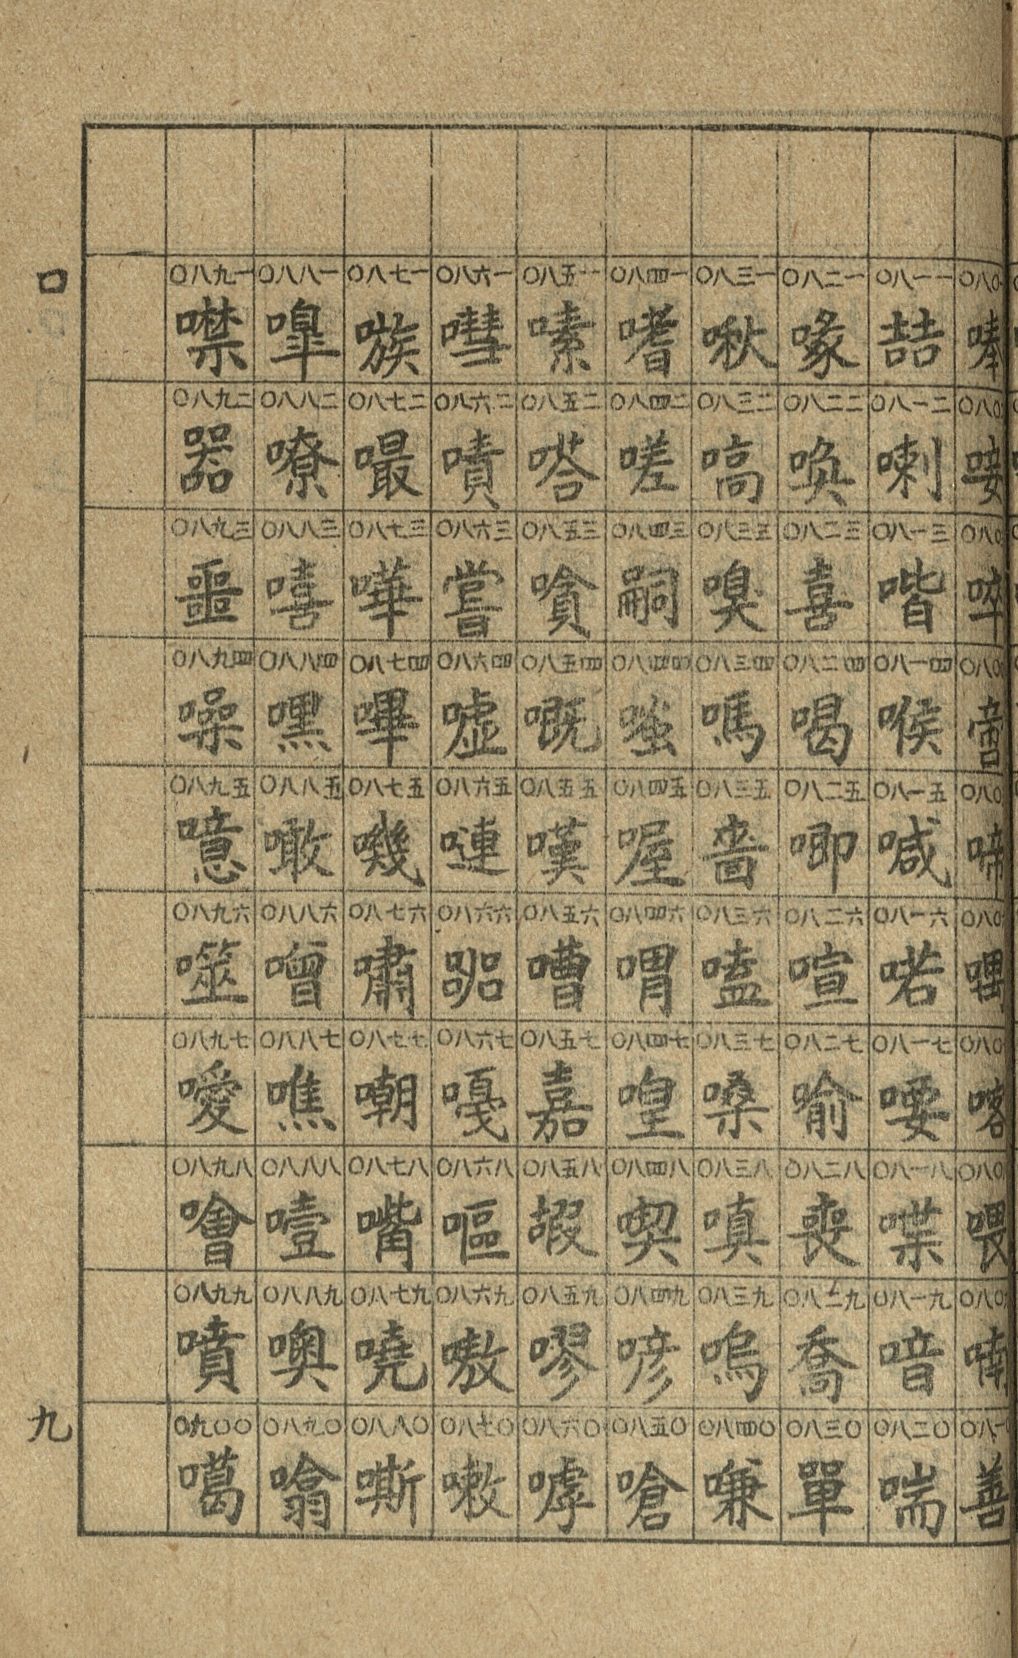 口
九
〇八〇
〇八〇
〇八〇
啐
〇八〇
啻
〇八〇
啼
〇八〇
〇八〇
喀
〇八〇
喂
〇八〇
喃
〇八一
善
〇八一一
喆
〇八一二
喇
〇八一三
喈
〇八一四
喉
〇八一五
喊
〇八一六
喏
〇八一七
喓
〇八一八
喋
〇八一九
喑
〇八二〇
喘
〇八二一
喙
〇八二二
喚
〇八二三
喜
〇八二四
喝
〇八二五
喞
〇八二六
喧
〇八二七
喻
〇八二八
喪
〇八二九
喬
〇八三〇
單
〇八三一
啾
〇八三二
嗃
〇八三三
嗅
〇八三四
嗎
〇八三五
嗇
〇八三六
嗑
〇八三七
嗓
〇八三八
嗔
〇八三九
嗚
〇八四〇
嗛
〇八四一
嗜
〇八四二
嗟
〇八四三
嗣
〇八四四
嗤
〇八四五
喔
〇八四六
喟
〇八四七
喤
〇八四八
喫
〇八四九
喭
〇八五〇
嗆
〇八五一
嗉
〇八五二
嗒
〇八五三
嗿
〇八五四
嘅
〇八五五
嘆
〇八五六
嘈
〇八五七
嘉
〇八五八
嘏
〇八五九
嘐
〇八六〇
嘑
〇八六一
嘒
〇八六二
嘖
〇八六三
嘗
〇八六四
嘘
〇八六五
嗹
〇八六六
嘂
〇八六七
嘎
〇八六八
嘔
〇八六九
嗷
〇八七〇
嗽
〇八七一
嗾
〇八七二
嘬
〇八七三
嘩
〇八七四
嗶
〇八七五
嘰
〇八七六
嘯
〇八七七
嘲
〇八七八
嘴
〇八七九
嘵
〇八八〇
嘶
〇八八一
嘷
〇八八二
嘹
〇八八三
嘻
〇八八四
嘿
〇八八五
噉
〇八八六
噌
〇八八七
噍
〇八八八
噎
〇八八九
噢
〇八九〇
噏
〇八九一
噤
〇八九二
器
〇八九三
噩
〇八九四
噪
〇八九五
噫
〇八九六
噬
〇八九七
噯
〇八九八
噲
〇八九九
噴
〇九〇〇
噶